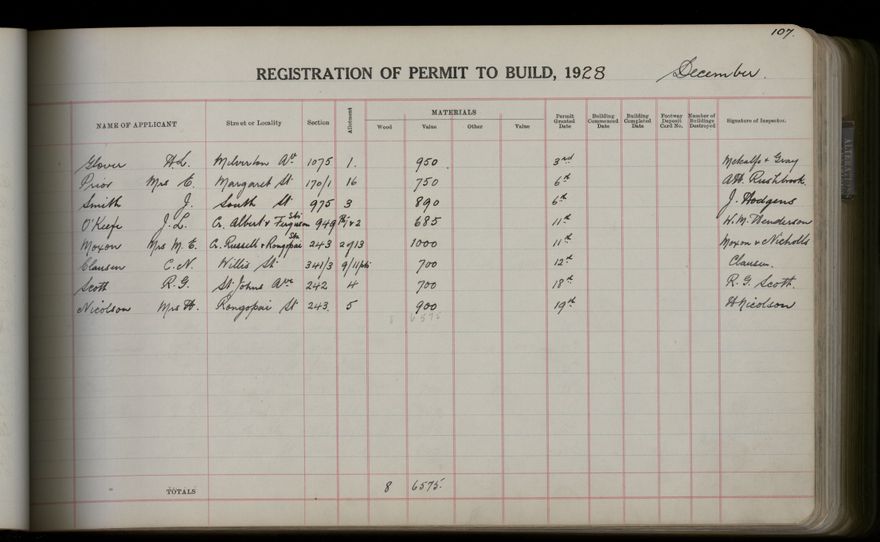 107.
REGISTRATION OF PERMIT TO BUILD, 1928 December.
NAME OF APPLICANT Street or Locality Section Allotment MATERIALS Wood Value Other Value Permit Granted Date Building Commenced Date Building Completed Date Footway Deposit Card No. Number of Buildings Destroyed Signature of Inspector.
Glover H.L. Milverton Ave 1075 1. 950. 3rd Metcalfe & Gray
Prior Mrs E. Margaret St 170/1 16 750 6th A.H. Rushbrook.
Smith J. South St 975 3 890 6th J. Hodgens
O'Keefe J.L. Cr. Albert & Ferguson Sts 949 Pt 1 & 2 685 11th H.M. Henderson
Moxon Mrs M.E. Cr. Russell & Rongopai Sts 243 2 of 13 1000 11th Moxon & Nicholls
Clausen C.N. Willis St 341/3 9/11 700 12th Clausen.
Scott R.G. St Johns Ave 242 4 700 18th R.G. Scott.
Nicolson Mrs H. Rongopai St 243. 5 900 19th H Nicolson
8 6575
TOTALS 8 6575.